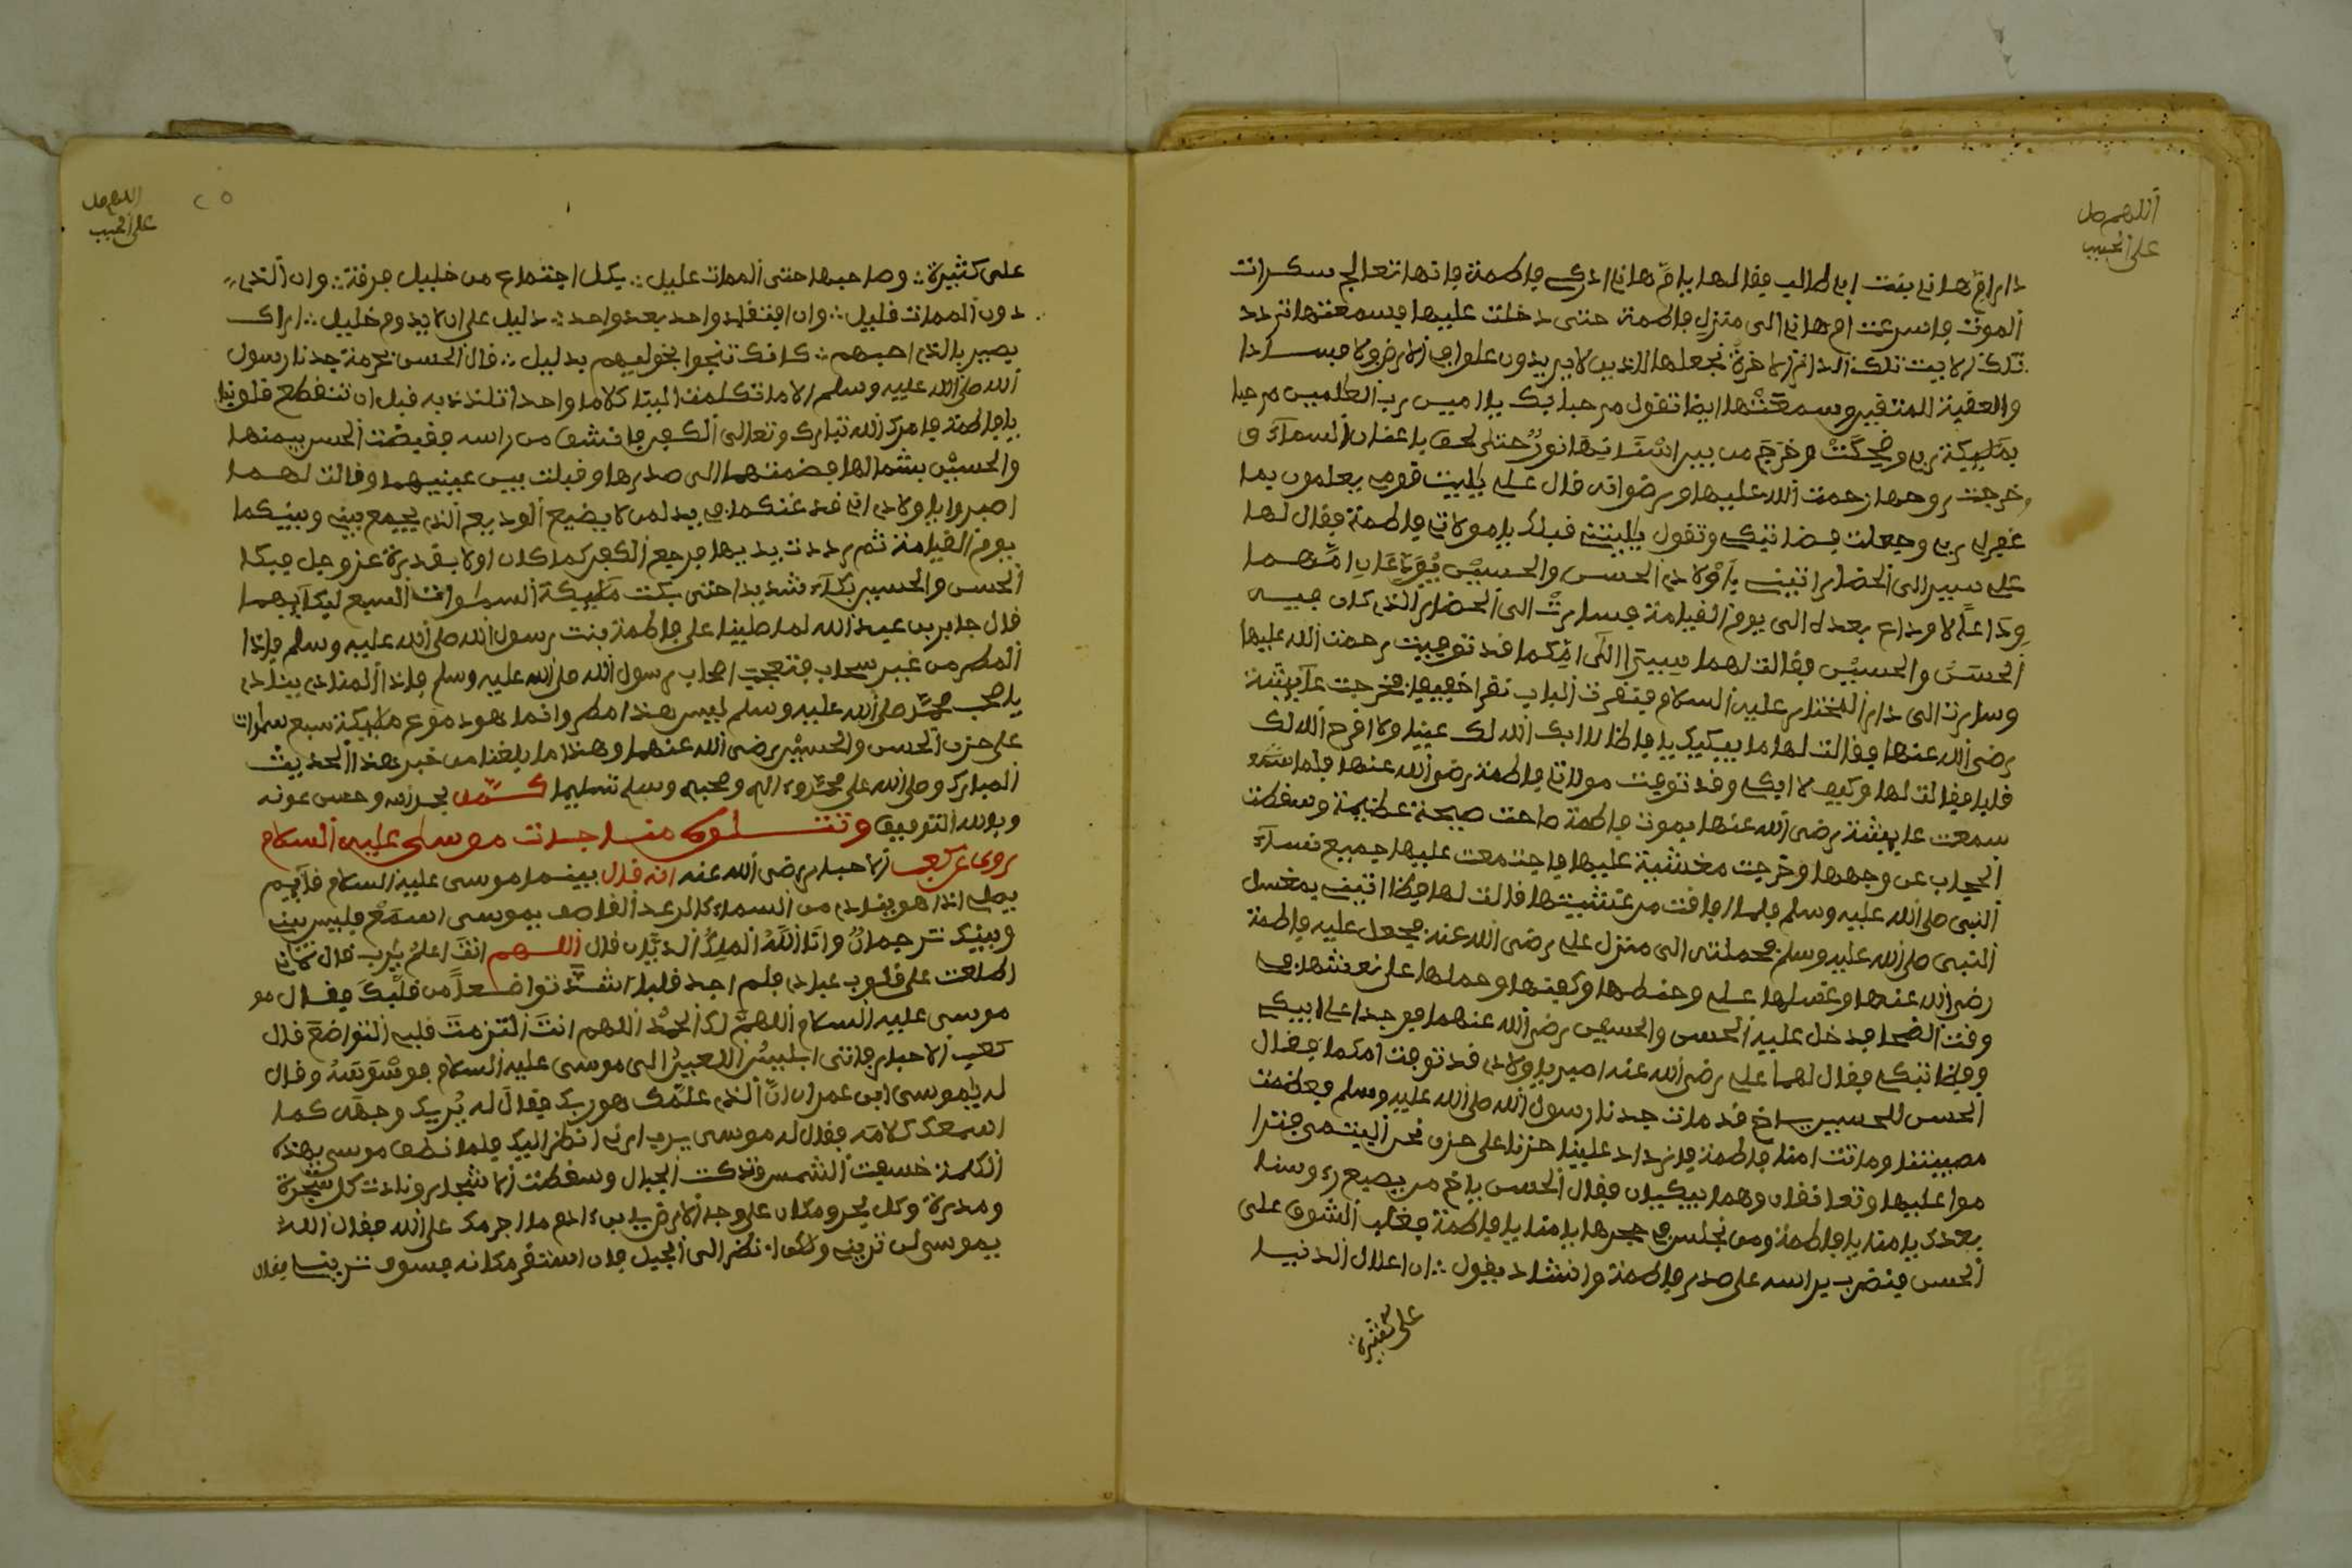 اللهم صل
على الحبيب
دار ام هاني بنت ابي طالب فقال لها يا ام هاني ادركي فاطمة فانها تعالج سكرات
الموت فاسرعت ام هاني الى منزل فاطمة حتى دخلت عليها فسمعتها تردد
تلك الايت تلك الدار الاخرة نجعلها للذين لا يريدون علوا في الارض ولا فسادا
والعقبة للمتقين وسمعتها ايضا تقول مرحبا بك يا امين رب العلمين مرحبا
بمليكة ربي وضحكت وخرج من بين اسنانها نور حتى لحق باعنان السماء و
وخرجت روحها رحمت الله عليها ورضوانه قال علي يليت قومي يعلمون بما
غفر لي ربي وجعلت فضا تبكي وتقول يليتني قبلك يا مولاتي فاطمة فقال لها
علي سير الى الحضار اتيني باولادي الحسن والحسين يودعان امهما
وداعا لا وداع بعده الى يوم القيامة فسارت الى الحضار الذي كان فيه
الحسن والحسين فقالت لهما سيرا الى امكما قد توفيت رحمت الله عليها
وسارت الى دار المختار عليه السلام فنقرت الباب نقرا خفيفا فخرجت عايشة
رضي الله عنها فقالت لها ما يبكيك يا فاظا لا ابك الله لك عينا ولا افرح الله لك
قلبا فقالت لها وكيف لا ابكي وقد توفيت مولاتي فاطمة رضي الله عنها فلما
سمعت عايشة رضي الله عنها بموت فاطمة صاحت صيحة عظيمة وسقطت
الحجاب عن وجهها وخرجت مغشية عليها فاجتمعت عليها جميع نساء
النبي صلى الله عليه وسلم فلما افاقت من غشيتها قالت لها فظا اتيني بمغسل
النبي صلى الله عليه وسلم فحملته الى منزل علي رضي الله عنه فجعل عليه فاطمة
رضي الله عنها وغسلها علي وحنطها وكفنها وحملها على نعشها في
وقت الضحا فدخل عليه الحسن والحسين رضي الله عنهما فوجدا علي يبكي
وفظا تبكي فقال لهما علي رضي الله عنه اصبر يا ولادي قد توفت امكما فقال
الحسن للحسين يا اخ قد مات جدنا رسول الله صلى الله عليه وسلم فعظمت
مصيبتنا وماتت امنا فاطمة فازداد علينا حزنا على حزن نحن اليتمى فترا
موا عليها وتعانقان وهما يبكيان فقال الحسن يا اخ من يصبع رءوسنا
بعدك يا امنا يا فاطمة ومن نجلس في حجرها يا امنا يا فاطمة فغلب الشوق على
الحسن فضرب براسه على صدر فاطمة وانشاد يقول ؞ ان اعلال الدنيا
على كثيرة ؞
اللهم صل
على الحبيب
٢٥
على كثيرة ؞ وصاحبها حتى الممات عليل ؞ يكل اجتماع من خليل فرقة ؞ وان الذي
دون الممات قليل ؞ وان افتقاد واحد بعد واحد ؞ دليل على ان لا يدوم خليل ؞ اراك
بصير بالذي احبهم ؞ كانك تنجوا نحوهم بدليل ؞ قال الحسن بحرمة جدنا رسول
الله صلى الله عليه وسلم الا ما تكلمت الينا كلاما واحدا نتلذذ به قبل ان تتقطع قلوبنا
يا فاطمة فامر الله تبارك وتعالى الكفن فانشق من راسه فقبضت الحسن بيمنها
والحسين بشمالها فضمتهما الى صدرها وقبلت بين عينيهما وقالت لهما
اصبروا يا ولادي اني قد غنكما في يد لمن لا يضيع الوديع الذي يجمع بيني وبينكما
يوم القيامة ثم رددت يديها فرجع الكفن كما كان اولا بقدرة عز وجل فبكا
الحسن والحسين بكاء شديدا حتى بكت مليكة السموات السبع لبكايهما
قال جابر بن عبد الله لما صلينا على فاطمة بنت رسول الله صلى الله عليه وسلم فاذا
المطر من غير سحاب فتعجبت اصحاب رسول الله صلى الله عليه وسلم فاذا المنادي ينادي
يا صحب محمد صلى الله عليه وسلم ليس هذا مطر وانما هو دموع مليكة سبع سموات
على حزن الحسن والحسين رضي الله عنهما وهذا ما بلغنا من خبر هذا الحديث
المبارك وصلى الله على محمد وءاله وصحبه وسلم تسليما كملت بحمد الله وحسن عونه
وبالله التوفيق وتتلوه مناجات موسى عليه السلام
روى عن كعب الاحبار رضي الله عنه انه قال بينما موسى عليه السلام قايم
يصلي اذا هو ينادي من السماء كالرعد القاصف يموسى اسمع فليس بيني
وبينك ترجمان وانا الله الملك الديان قال اللهم انت اعلم يرب قال لاني
اطلعت على قلوب عبادي فلم اجد قلبا اشد تواضعا من قلبك فقال مو
موسى عليه السلام اللهم لك الحمد اللهم انت الزمت قلبي التواضع قال
كعب الاحبار فاتى ابليس اللعين الى موسى عليه السلام فوسوسه وقال
له يموسى ابن عمران ان الذي علمك هو ربك فقال له يريك وجهه كما
اسمعك كلامه فقال له موسى يرب ارني انظر اليك فلما نطق موسى بهذه
الكلمة خسفت الشمس وتدكت الجبال وسقطت الاشجار ونادت كل شجرة
ومدرة وكل بحر ومكان على وجه الارض يا بن ءادم ما اجرمك على الله فقال الله
يموسى لن تريني ولكن انظر الى الجبل فان استقر مكانه فسوف تريني فقال